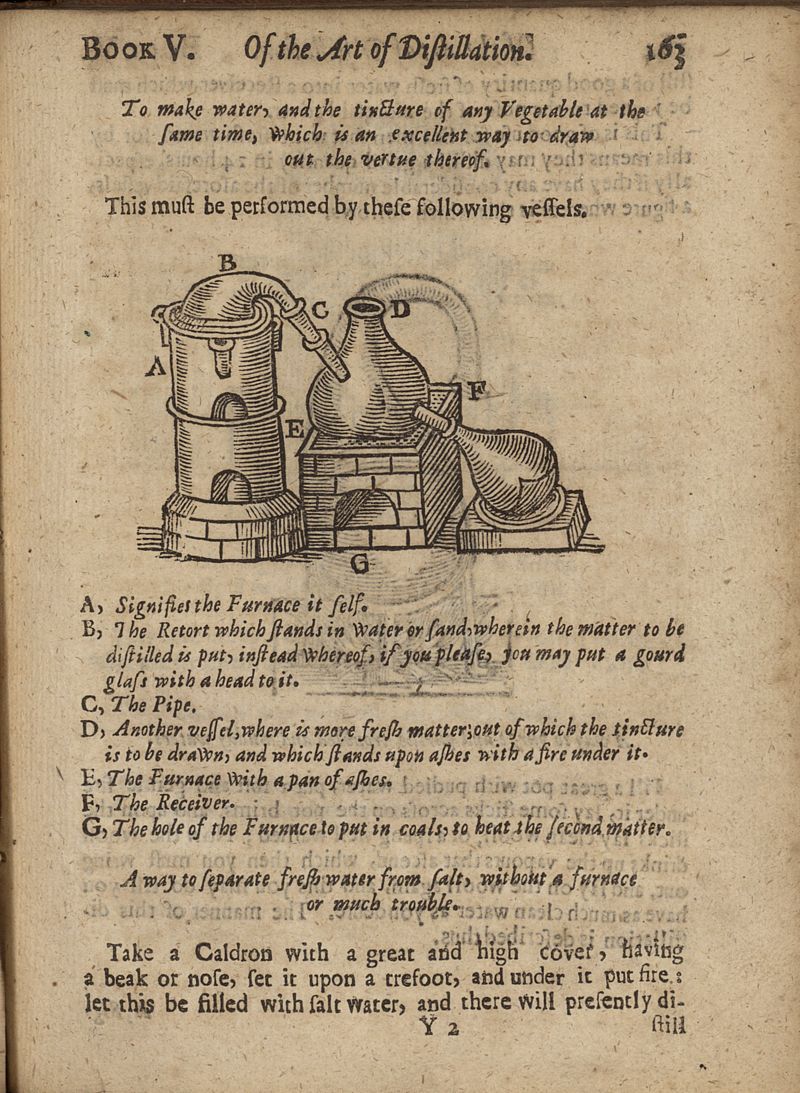 BOOK V. Of the Art of Diſtillation. 163
To make water, and the tincture of any Vegetable at the
ſame time, which is an excellent way to draw
out the vertue thereof.
This muſt be performed by theſe following veſſels.
B
C
D
A
F
E
G
A, Signifies the Furnace it ſelf.
B, The Retort which ſtands in water or ſand, wherein the matter to be
diſtilled is put, inſtead whereof, if you pleaſe, you may put a gourd
glaſs with a head to it.
C, The Pipe.
D, Another veſſel, where is more freſh matter; out of which the tincture
is to be drawn, and which ſtands upon aſhes with a fire under it.
E, The Furnace with a pan of aſhes.
F, The Receiver.
G, The hole of the Furnace to put in coals, to heat the ſecond matter.
A way to ſeparate freſh water from ſalt, without a furnace
or much trouble.
Take a Caldron with a great and high cover, having
a beak or noſe, ſet it upon a trefoot, and under it put fire:
let this be filled with ſalt water, and there will preſently di-
Y 2 ſtill